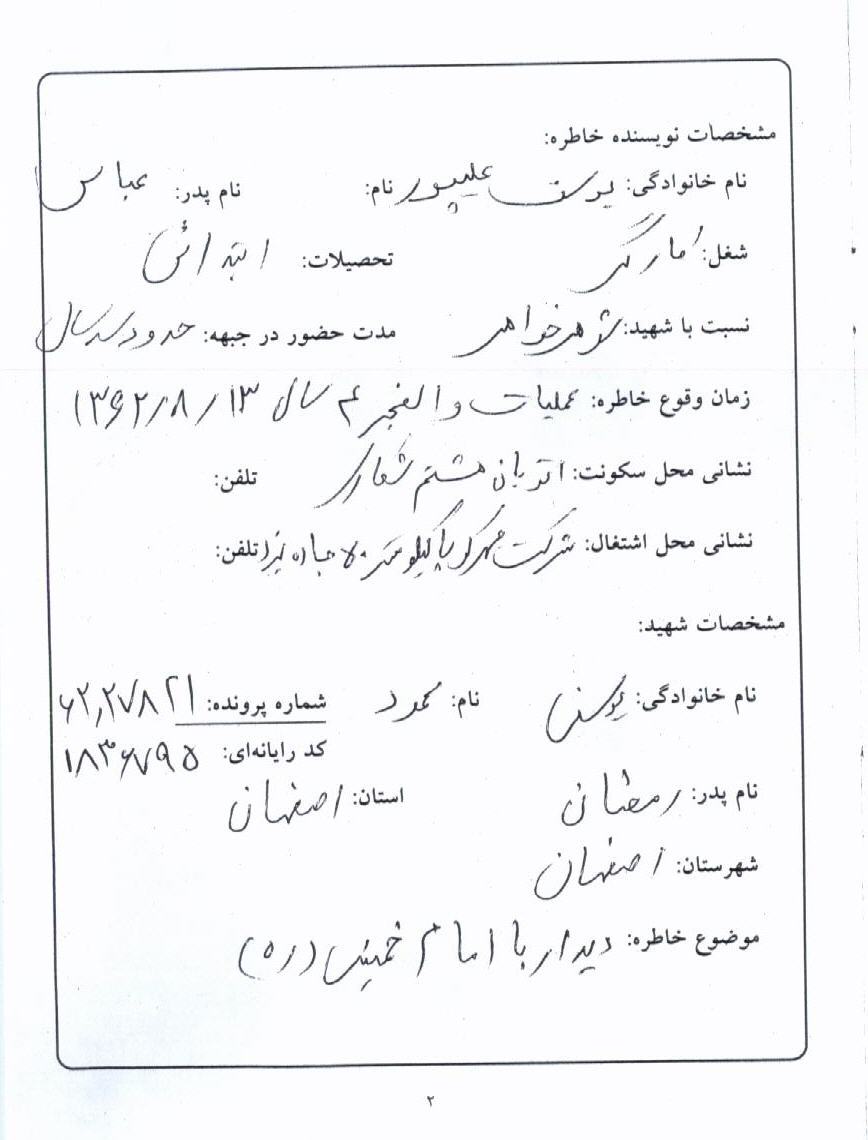 مشخصات نویسنده خاطره:
نام خانوادگی: یوسف علیپور نام: نام پدر: عباس
شغل: تحصیلات: ابتدائی
نسبت با شهید: شوهر خواهر مدت حضور در جبهه: حدود سه سال
زمان وقوع خاطره: عملیات والفجر ۴ سال ۱۳۶۲/۸/۱۳
نشانی محل سکونت: هشتم تلفن:
نشانی محل اشتغال: شرکت کیلومتر ۵۰ جاده تلفن:
مشخصات شهید:
نام خانوادگی: یوسفی نام: محمود شماره پرونده: ۶۲,۲۷۸۲۱
کد رایانه‌ای: ۱۸۳۶۷۹۵
نام پدر: رمضان استان: اصفهان
شهرستان: اصفهان
موضوع خاطره: دیدار با امام خمینی (ره)
۲